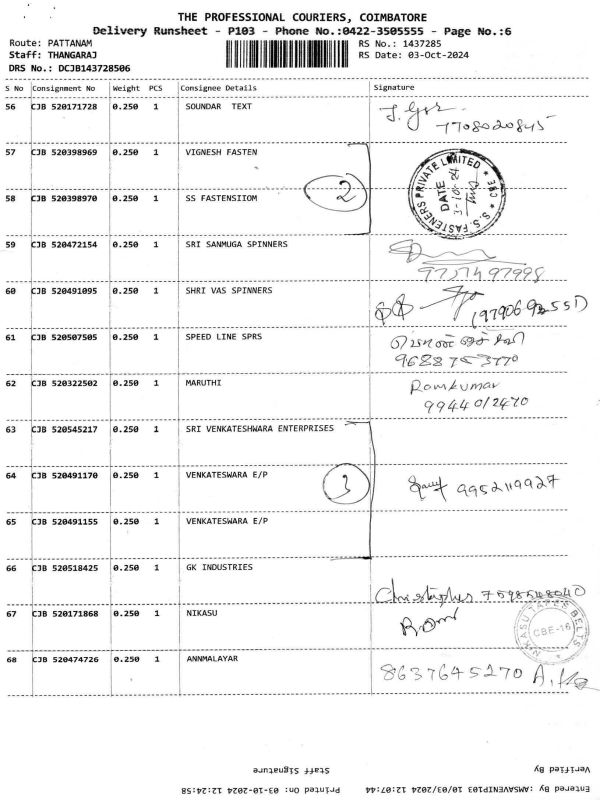 THE PROFESSIONAL COURIERS, COIMBATORE
Delivery Runsheet - P103 - Phone No.:0422-3505555 - Page No.:6
Route: PATTANAM RS No.: 1437285
Staff: THANGARAJ RS Date: 03-Oct-2024
DRS No.: DCJB143728506
S No Consignment No Weight PCS Consignee Details Signature
56 CJB 520171728 0.250 1 SOUNDAR TEXT
7708020845
57 CJB 520398969 0.250 1 VIGNESH FASTEN
S.S. FASTENERS PRIVATE LIMITED * CBE *
DATE
3-10-24
2
58 CJB 520398970 0.250 1 SS FASTENSIIOM
59 CJB 520472154 0.250 1 SRI SANMUGA SPINNERS
60 CJB 520491095 0.250 1 SHRI VAS SPINNERS
61 CJB 520507505 0.250 1 SPEED LINE SPRS
62 CJB 520322502 0.250 1 MARUTHI Ramkumar
9944012470
63 CJB 520545217 0.250 1 SRI VENKATESHWARA ENTERPRISES
64 CJB 520491170 0.250 1 VENKATESWARA E/P 3 9952119927
65 CJB 520491155 0.250 1 VENKATESWARA E/P
66 CJB 520518425 0.250 1 GK INDUSTRIES
Christopher 7598548040
67 CJB 520171868 0.250 1 NIKASU
NIKASU TAPES BELTS
CBE-16
68 CJB 520474726 0.250 1 ANNMALAYAR 8637645270
Verified By Staff Signature
Entered By :AMSAVENIP103 10/03/2024 12:07:44 Printed On: 03-10-2024 12:24:58